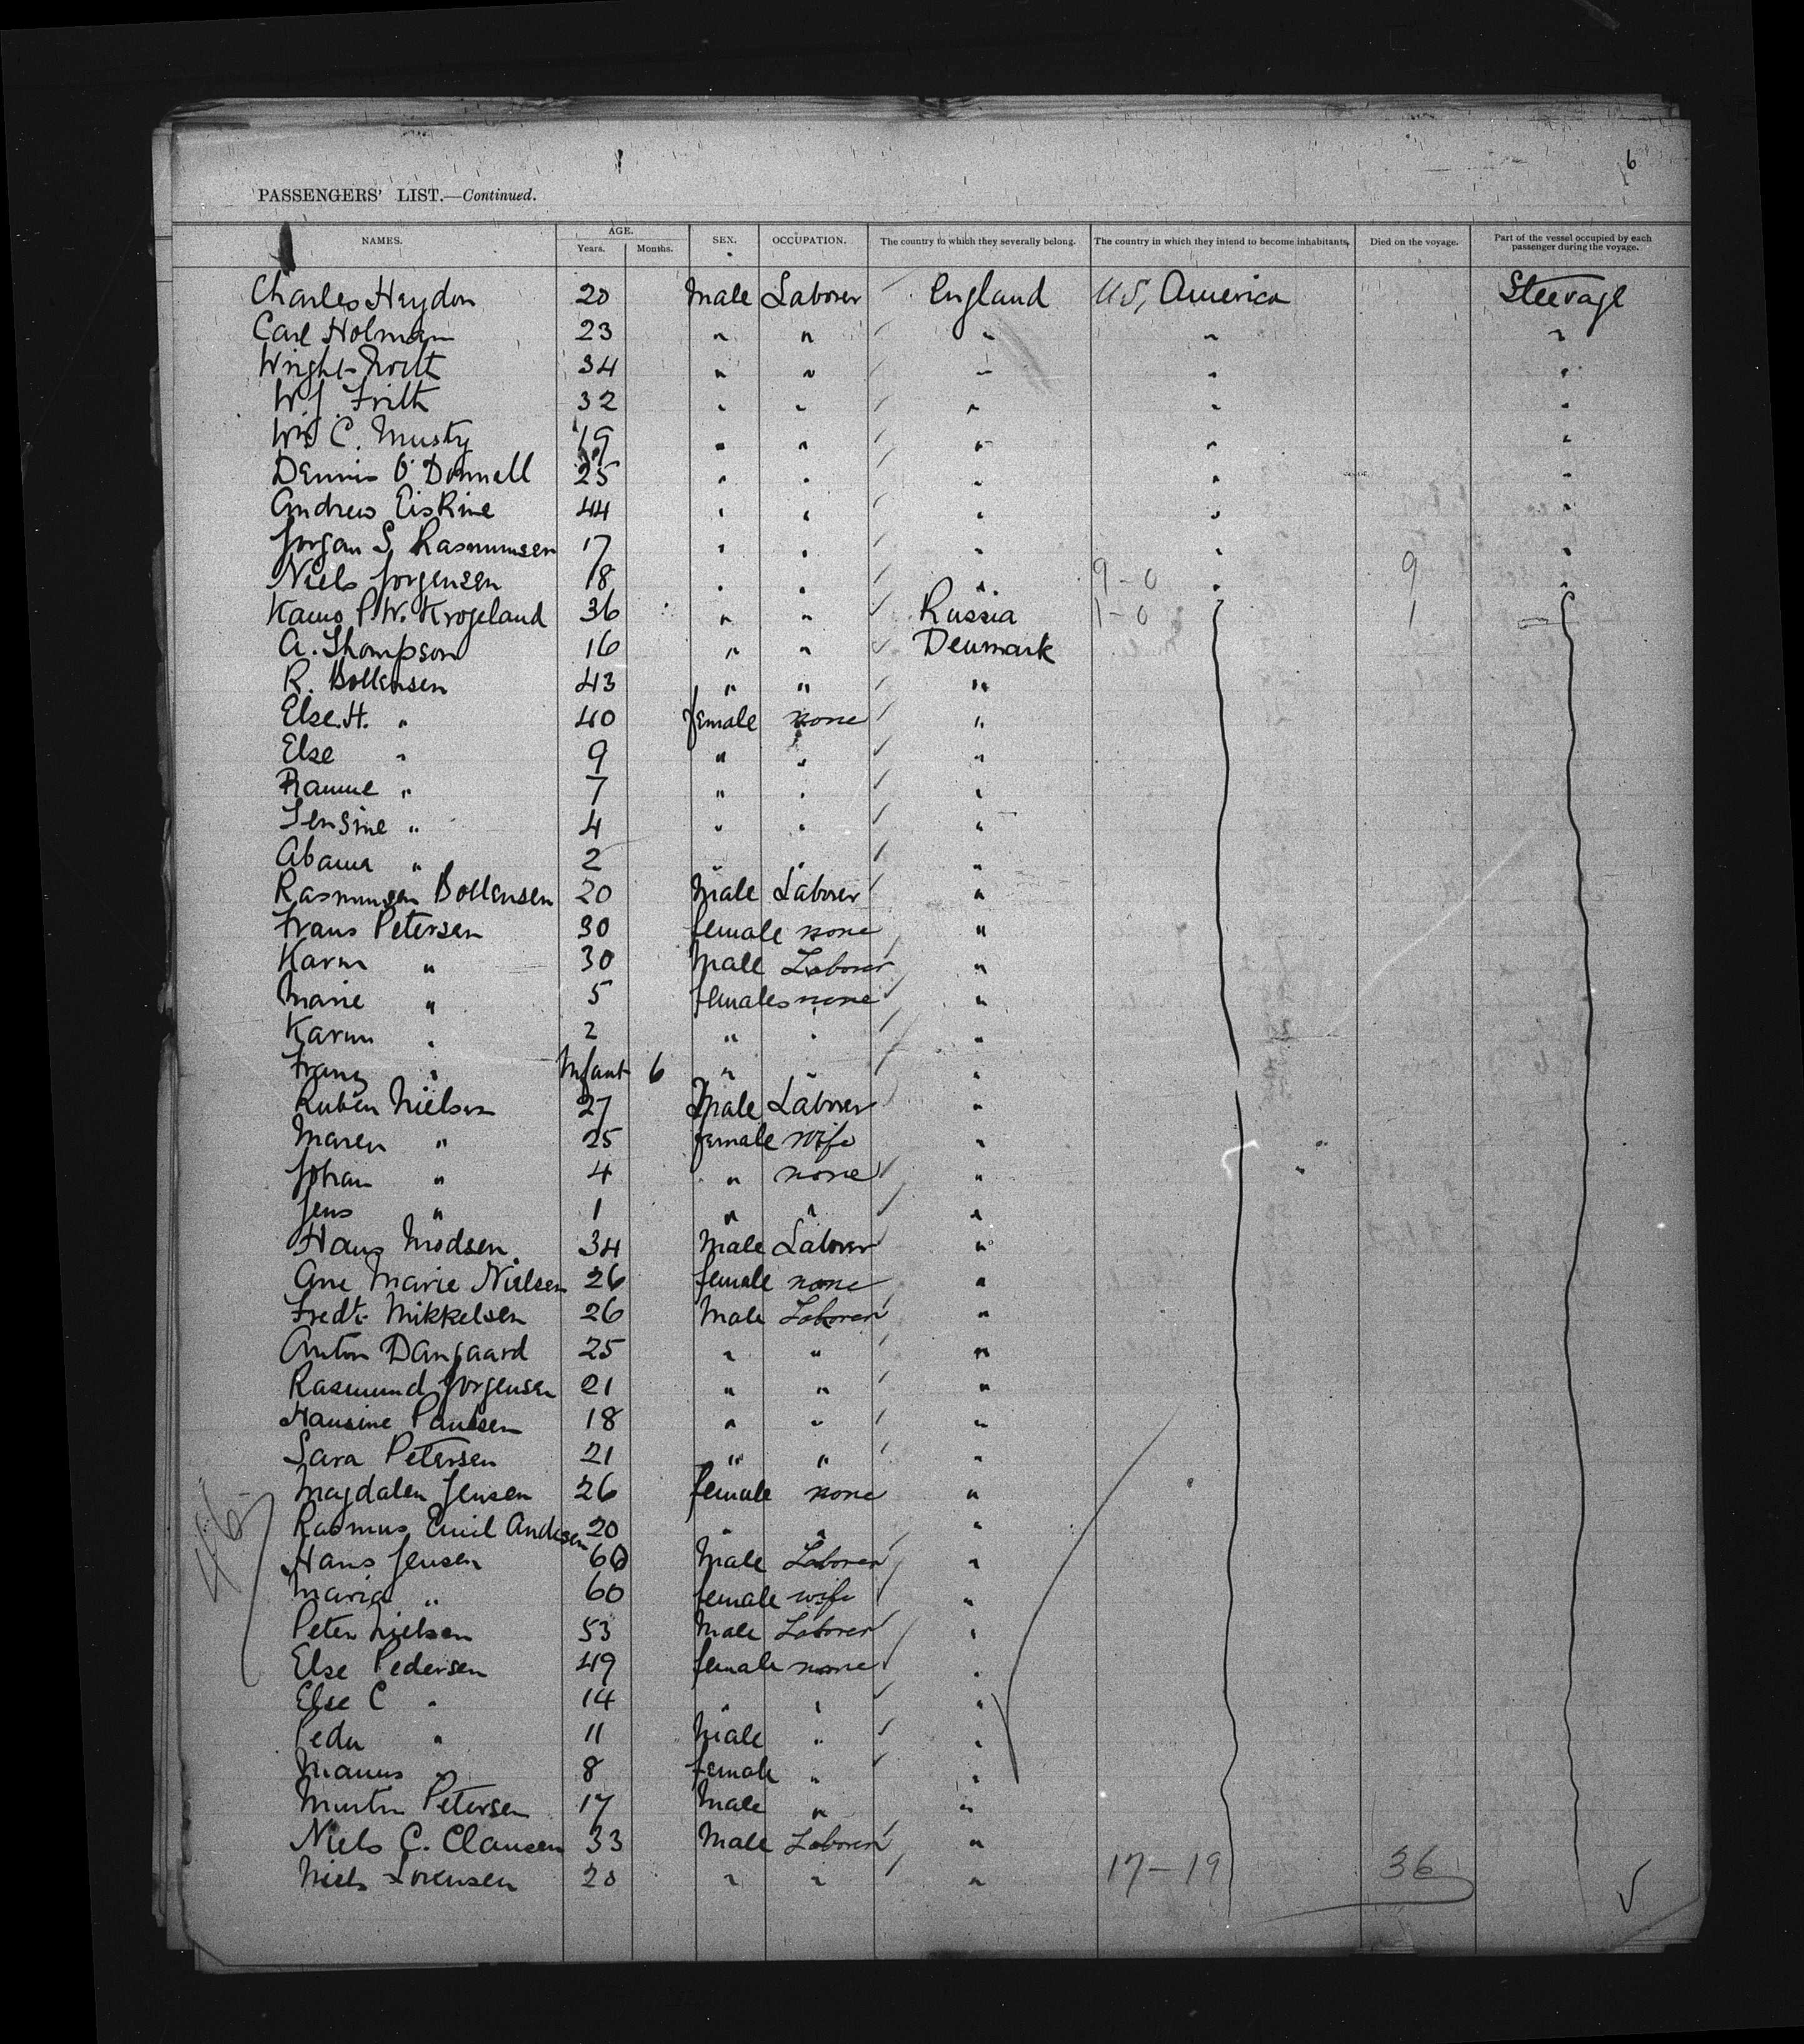 6
PASSENGERS' LIST.—Continued.
NAMES. AGE. Years. Months. SEX. OCCUPATION. The country to which they severally belong. The country in which they intend to become inhabitants. Died on the voyage. Part of the vessel occupied by each passenger during the voyage.
Charles Haydon 20 Male Laborer England U.S, America Steerage
Carl Holman 23 " " " " "
Wright 34 " " " " "
W.J. Frith 32 " " " " "
Wm C. Musty 19 " " " " "
Dennis O'Donnell 25 " " " " "
Andrew Eiskine 44 " " " " "
Jorgan S. Rasmumsen 17 " " " " "
Niels Jorgensen 18 " " " 9-0 " 9 "
P.W. Krogeland 36 " " Russia 1-0 1
A. Thompson 16 " " Denmark
R. Bollensen 43 " " "
Else H. " 40 female none "
Else " 9 " " "
" 7 " " "
Sensine " 4 " " "
" 2 " " "
Rasmussen Bollensen 20 Male Laborer "
Frans Petersen 30 female none "
Karn " 30 Male Laborer "
Marie " 5 females none "
Karn " 2 " " "
Franz " Infant 6 " " "
Ruben Nielsen 27 Male Laborer "
Maren " 25 female wife "
Johan " 4 " none "
Jens " 1 " " "
Hans Modsen 34 Male Laborer "
Ane Marie Nielsen 26 female none "
Fredk Mikkelsen 26 Male Laborer "
Anton Dangaard 25 " " "
Rasmund Jorgensen 21 " " "
Hansine Paulsen 18 " " "
Sara Petersen 21 " " "
Magdalen Jensen 26 female none "
Rasmus Emil Andesen 20 " " "
Hans Jensen 60 Male Laborer "
Maria " 60 female wife "
Peter Nielsen 53 Male Laborer "
Else Pedersen 49 female none "
Else C " 14 " " "
Peder " 11 Male " "
" 8 female " "
Martin Petersen 17 Male " "
Niels C. Clausen 33 Male Laborer "
Niels Sorensen 20 " " " 17-19 36
46